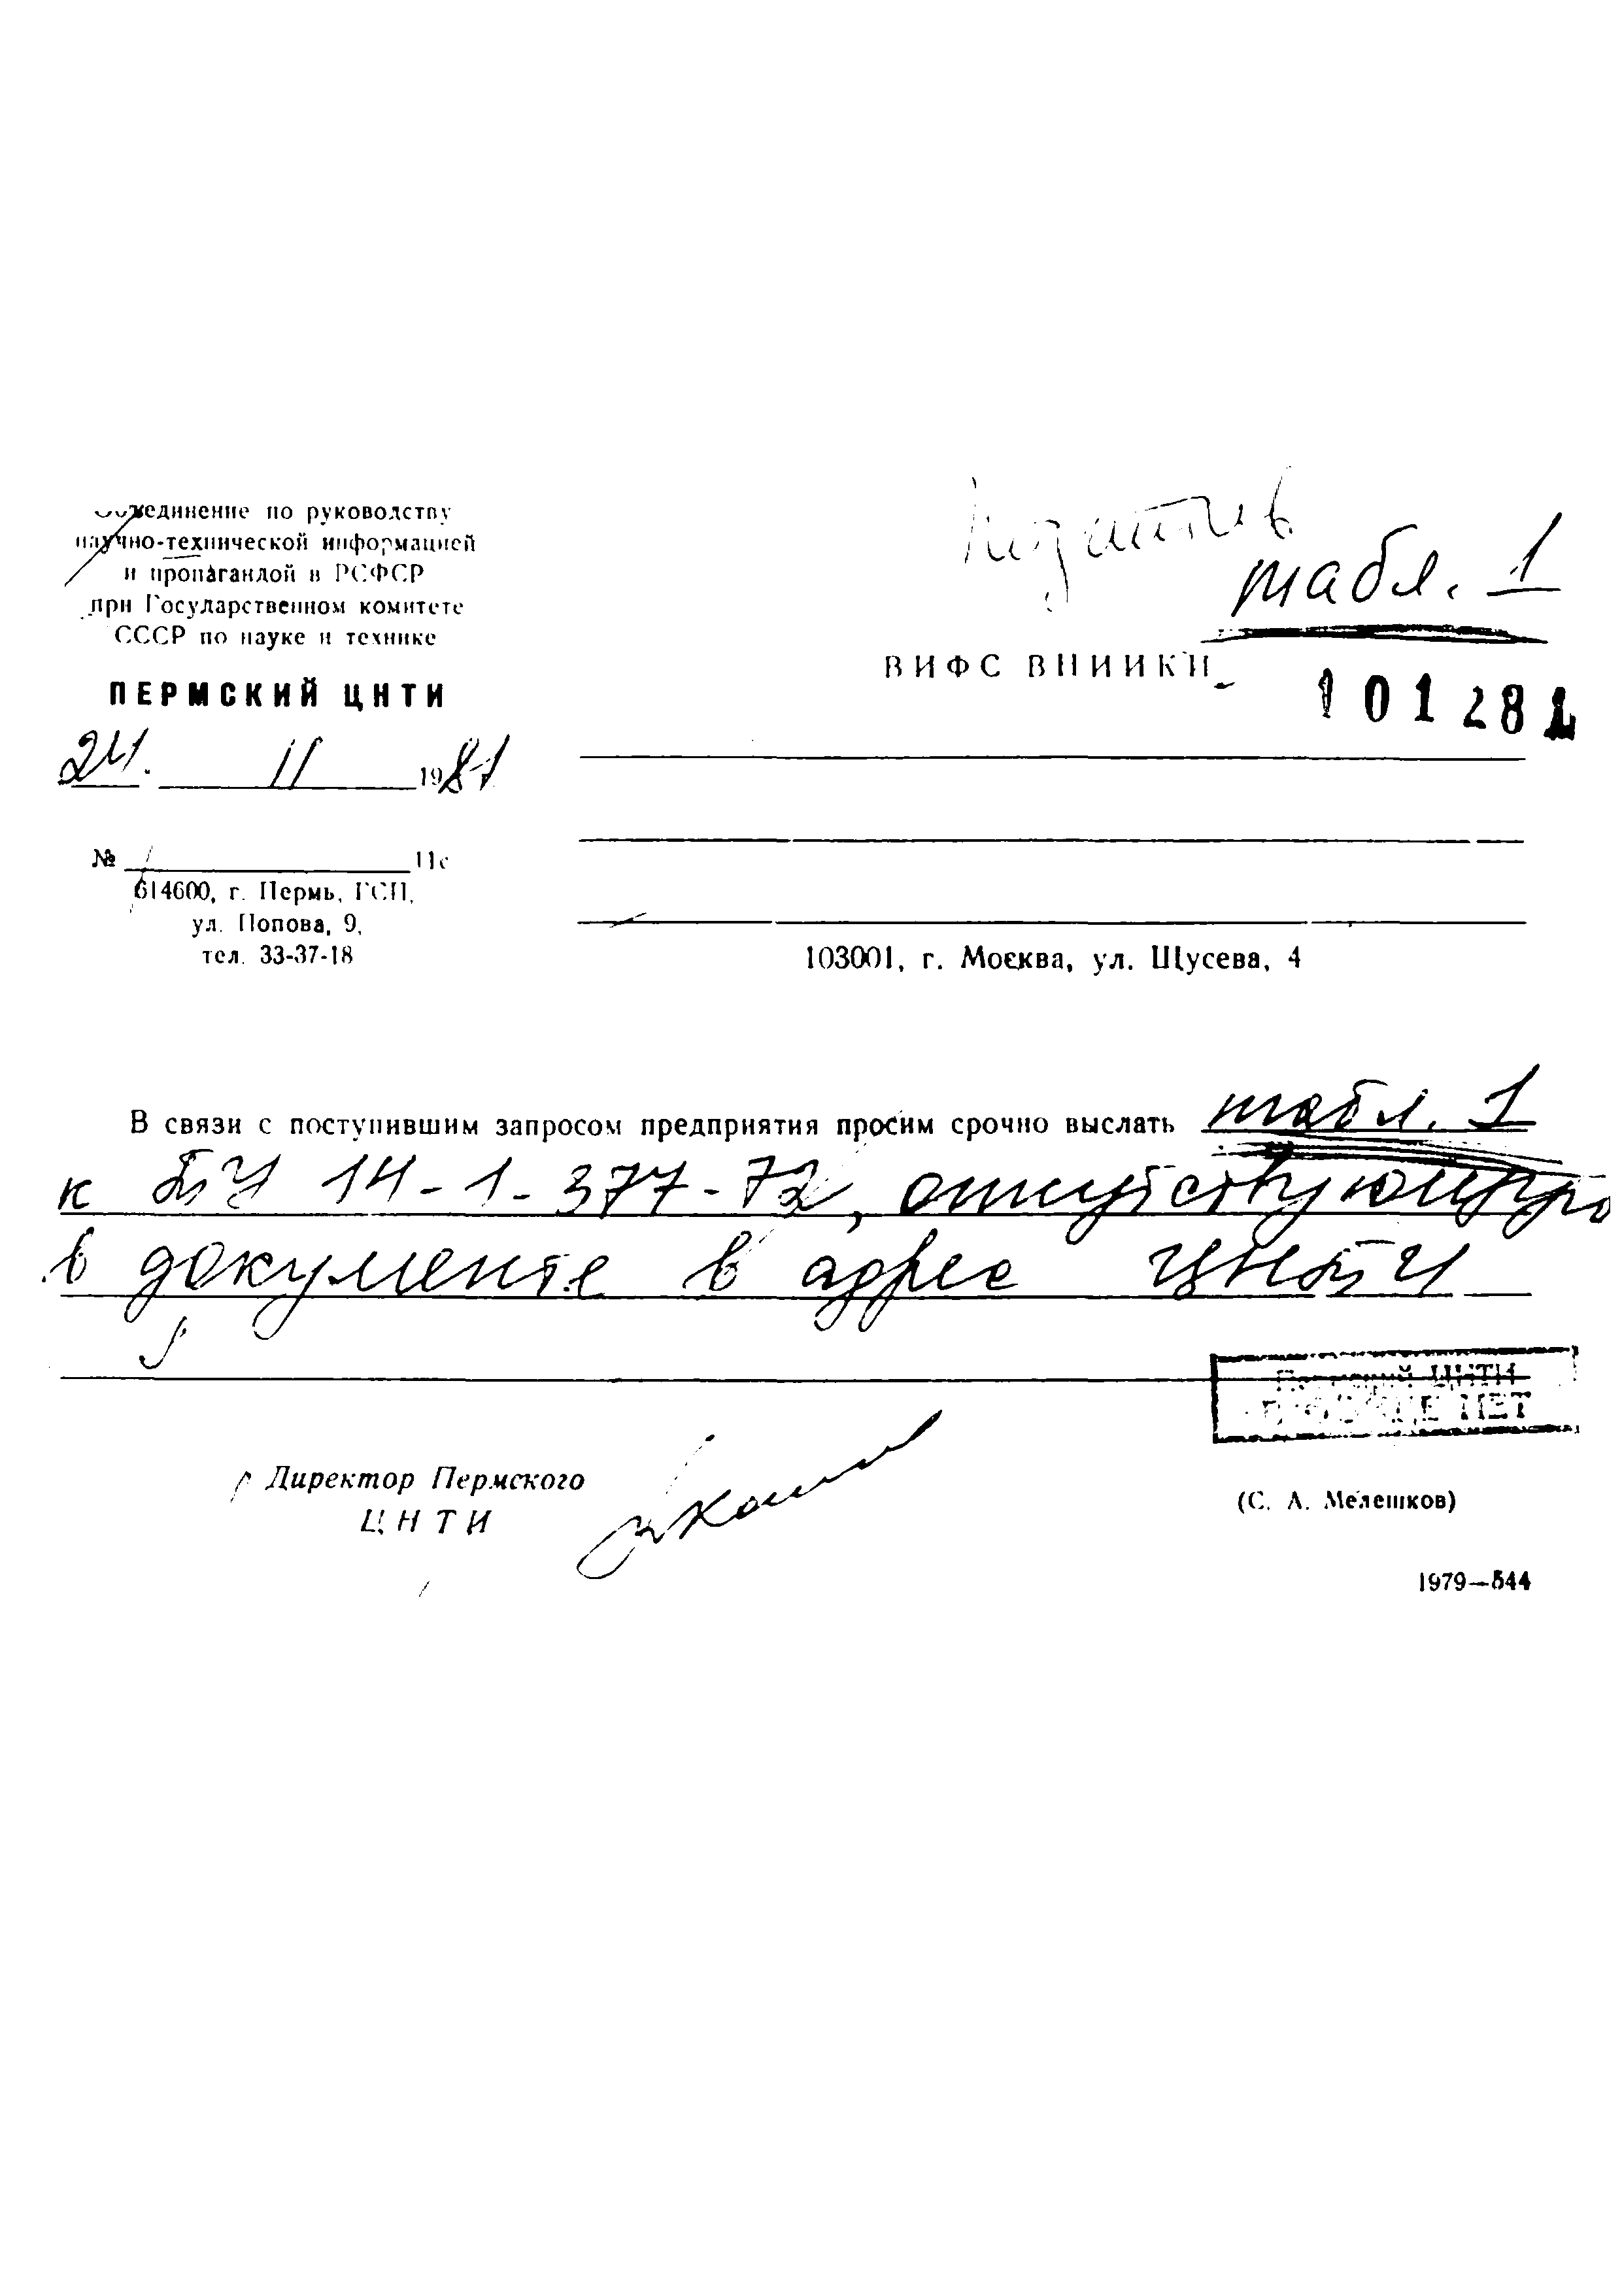 Объединение по руководству
научно-технической информацией
и пропагандой в РСФСР
при Государственном комитете
СССР по науке и технике
ПЕРМСКИЙ ЦНТИ
24. II 1981
№ 11с
614600, г. Пермь, ГСП,
ул. Попова, 9,
тел. 33-37-18
негатив
табл. 1
ВИФС ВНИИКИ
101281
103001, г. Москва, ул. Щусева, 4
В связи с поступившим запросом предприятия просим срочно выслать табл. 1
к ТУ 14-1-377-72, отсутствующую
в документе в адрес ЦНТИ
Пермский ЦНТИ
НЕТ
Директор Пермского
ЦНТИ
(С. А. Мелешков)
1979—544